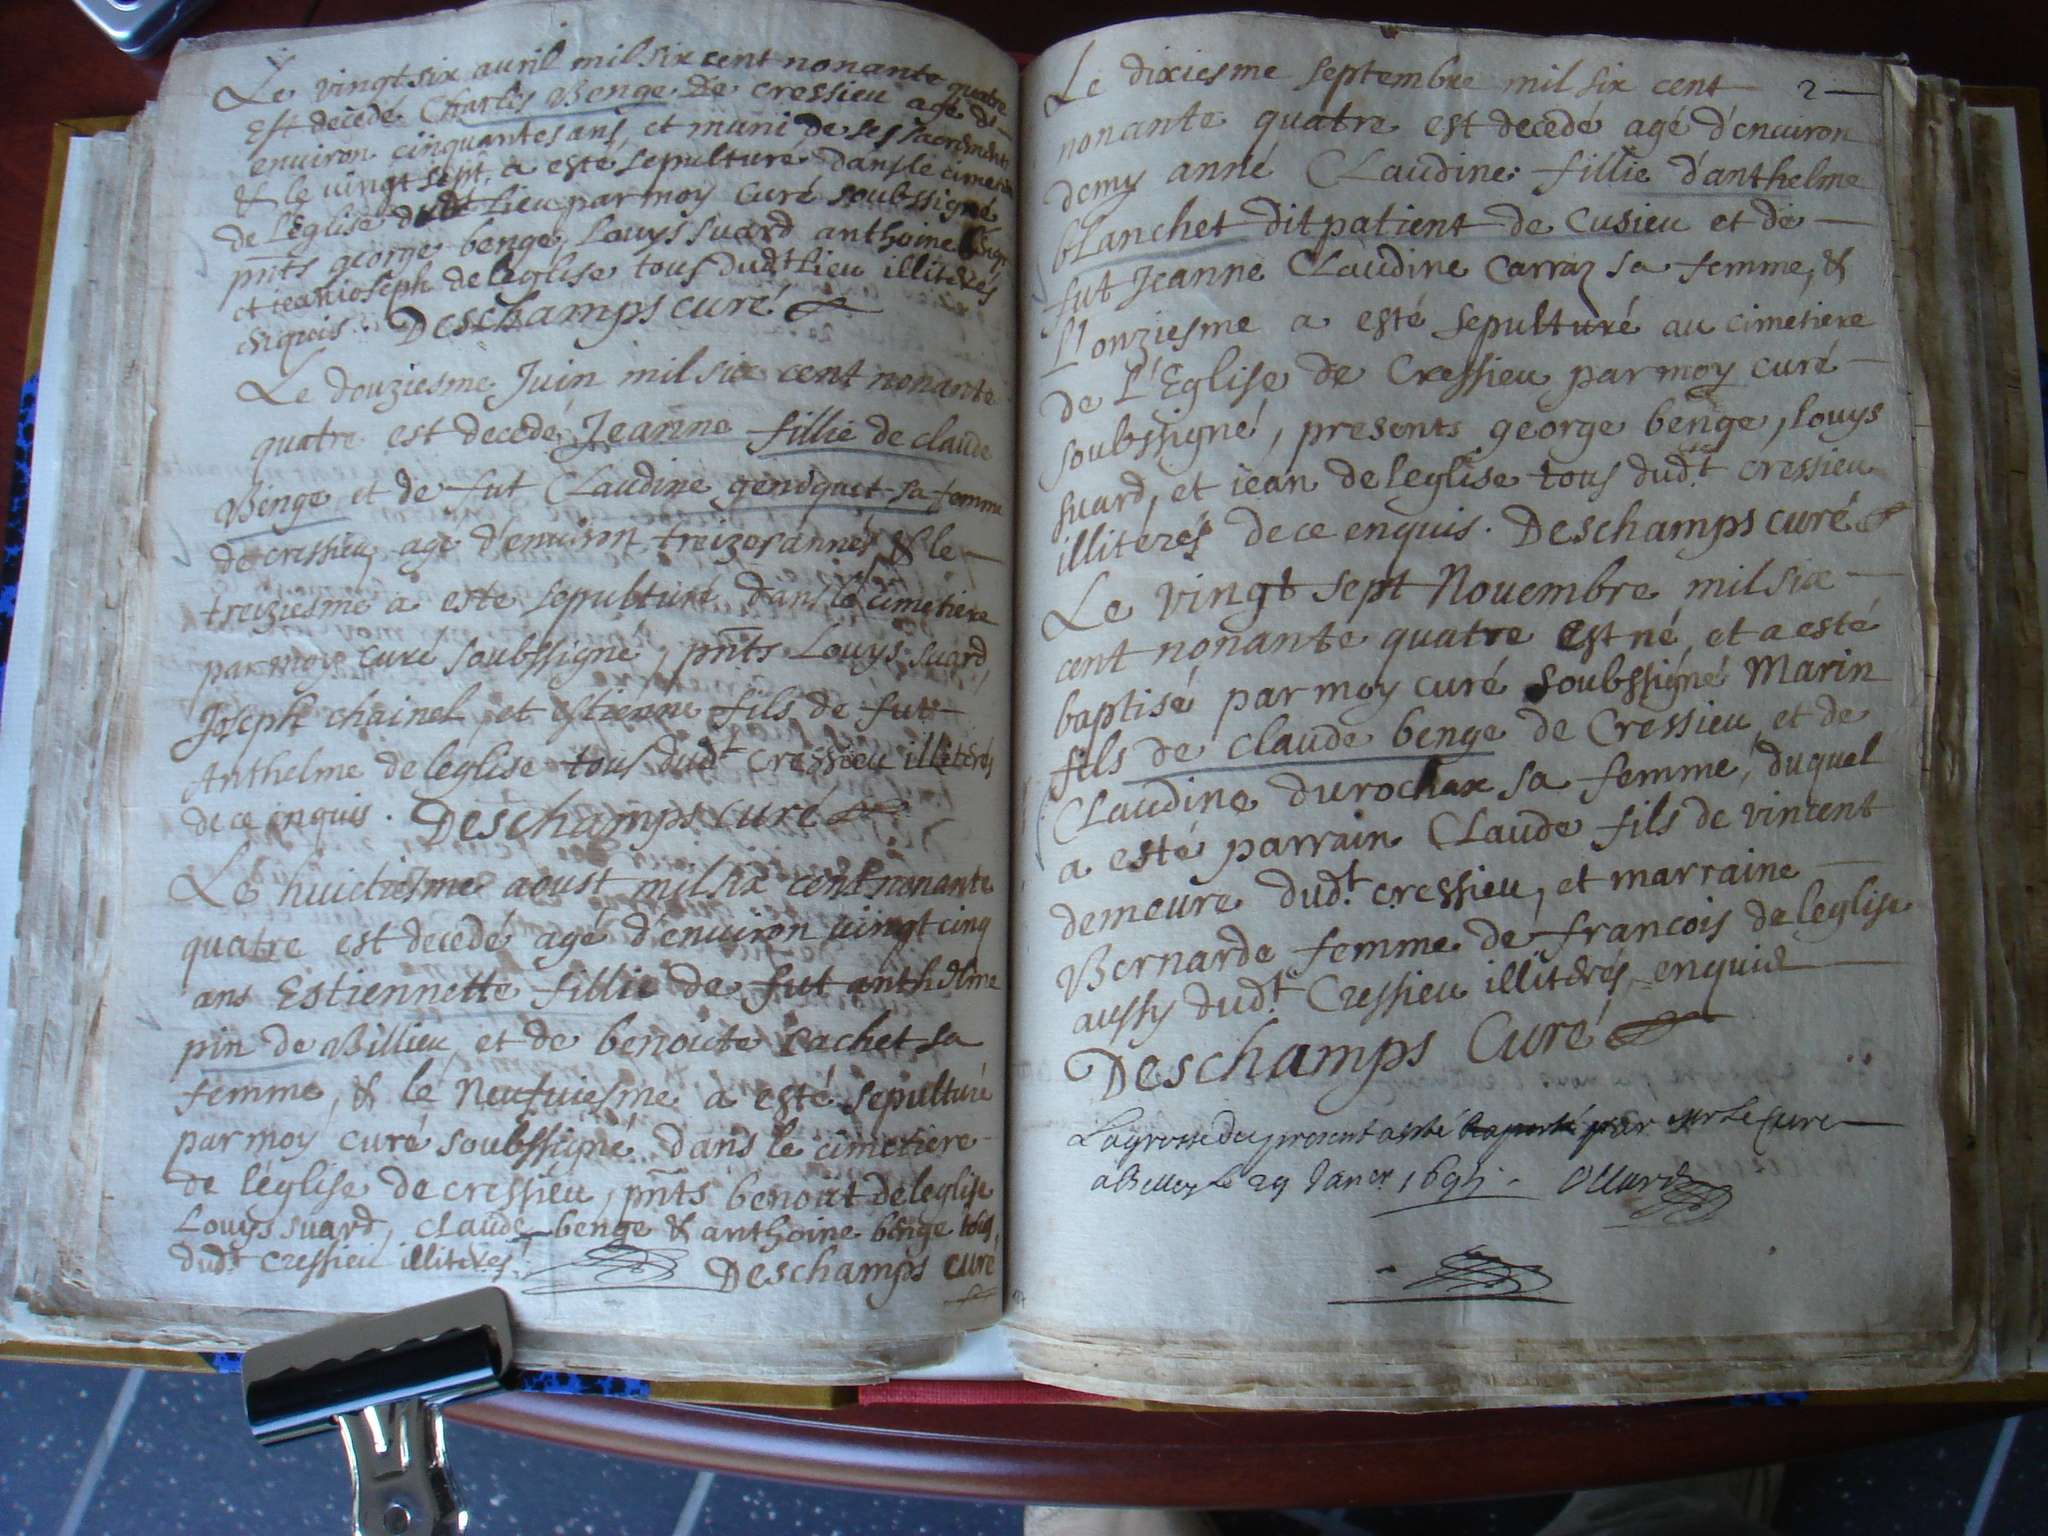 Le vingt six auril mil six cent nonante quatre
Est decedé Charles Benge de cressieu agé d'
enuiron cinquantes ans, et muni de ses sacrements
& le vingt sept, a esté sepulturé dans le cimetiere
de l'Eglise dudt Lieu par moy curé soubssigné
pnts george benge, Louys suard anthoine
et iean ioseph de leglise tous dudt Lieu illiterés
Deschamps curé
Le douziesme Juin mil six cent nonante
quatre est decedé Jeanne fillie de claude
Benge et de fut Claudine geniquet sa femme
de cressieu, agé d'enuiron treizes annés & le
treiziesme a esté sepulturé dans le cimetiere
par moy curé soubssigné, pnts Louys suard,
Joseph chainel, et estienne fils de fut
Anthelme de leglise tous dudt cressieu illiterés
de ce enquis. Deschamps curé
Le huictiesme aoust mil six cent nonante
quatre est decedé agé d'enuiron vingt cinq
ans Estiennette fillie de fut anthelme
pin de Billieu et de benoite cachet sa
femme, & le Neufuiesme a esté sepulturé
par moy curé soubssigné dans le cimetiere
de l'église de cressieu, pnts benoit de leglise
Louys suard, claude benge & anthoine benge tous
dudt cressieu illiterés Deschamps curé
2
Le dixiesme septembre mil six cent
nonante quatre est decedé agé d'enuiron
demy anné Claudine fillie d'anthelme
blanchet dit patient de cusieu et de
fut Jeanne Claudine Carraz sa femme, &
L'onziesme a esté sepulturé au cimetiere
de L'Eglise de Cressieu par moy curé
soubssigné, presents george benge, Louys
suard, et iean de leglise tous dudt cressieu
illiterés de ce enquis. Deschamps curé
Le vingt sept Nouembre mil six
cent nonante quatre est né, et a esté
baptisé par moy curé soubssigné Marin
fils de claude benge de Cressieu et de
Claudine durochax sa femme, duquel
a esté parrain Claude fils de vincent
demeure dudt cressieu, et marraine
Bernarde femme de francois de leglise
aussy dudt Cressieu illiterés, enquis
Deschamps Curé
La grosse du present a esté par mr le Cure
a Belley Le 29 Janer